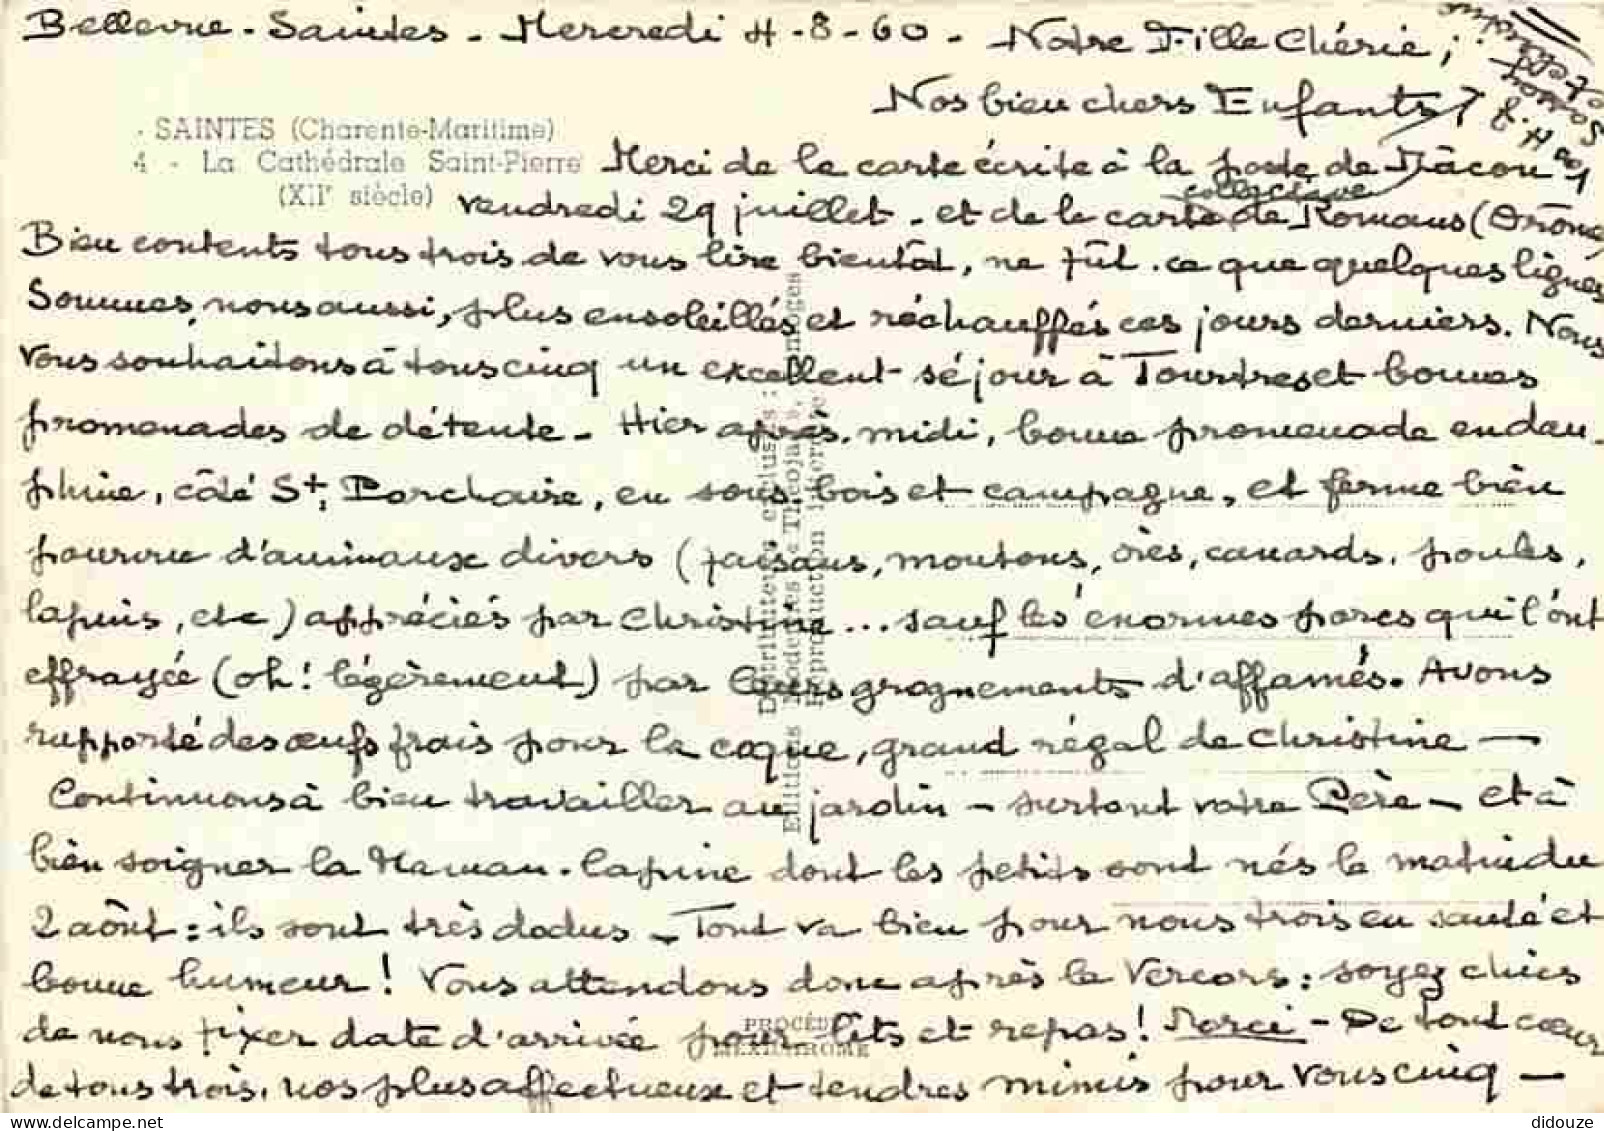 Bellevue - Saintes - Mercredi 4-8-60 - Notre Fille Chérie;
Nos bien chers Enfants,
- SAINTES (Charente-Maritime)
4 - La Cathédrale Saint-Pierre
(XIIe siècle)
Merci de la carte écrite à la poste de Mâcon
collective
vendredi 29 juillet - et de la carte de Romans (Drôme)
Bien contents tous trois de vous lire bientôt, ne fût-ce que quelques lignes
Sommes, nous aussi, plus ensoleillés et réchauffés ces jours derniers. Nous
vous souhaitons à tous cinq un excellent séjour à Tourtres et bonnes
promenades de détente - Hier après-midi, bonne promenade en dau-
phine, côté St. Porchaire, en sous-bois et campagne, et ferme bien
pourvue d'animaux divers (faisans, moutons, oies, canards, poules,
lapins, etc) appréciés par Christine... sauf les énormes porcs qui l'ont
effrayée (oh! légèrement) par leurs grognements d'affamés. Avons
rapporté des œufs frais pour la coque, grand régal de Christine —
Continuons à bien travailler au jardin - surtout votre Père - et à
bien soigner la Maman-lapine dont les petits sont nés le matin du
2 août: ils sont très dodus - Tout va bien pour nous trois en santé et
bonne humeur! Vous attendons donc après le Vercors: soyez chics
de nous fixer date d'arrivée pour lits et repas! Merci - De tout cœur
de tous trois, nos plus affectueux et tendres mimis pour vous cinq —
Editions Modernes « Théojac », Limoges
Reproduction interdite
PROCÉDÉ
MEXICHROME
didouze